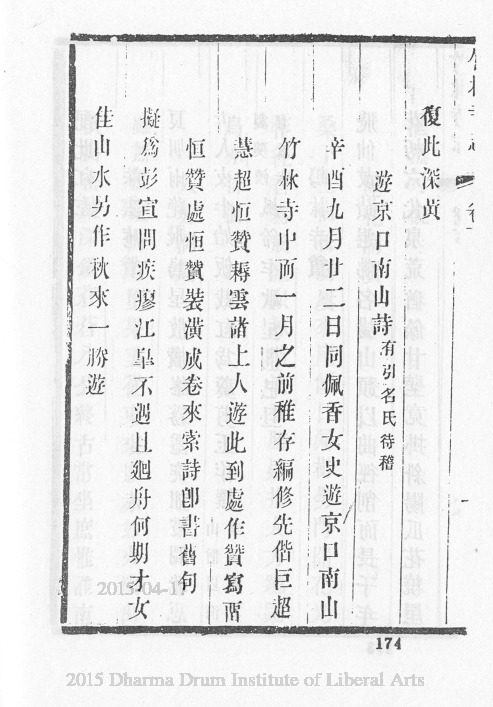 復此深黄
遊京口南山詩 有引名氏待稽
辛酉九月廿二日同佩香女史遊京口南山
竹林寺中而一月之前稚存編修先偕巨超
慧超恒贊蓴雲諸上人遊此到處作贊寫
恒贊處恒贊裝潢成卷來索詩卽書舊句
擬爲彭宣問疾瘳江皐不遇且廻舟何期才女
佳山水另作秋來一勝遊
174
2015-04-17
2015 Dharma Drum Institute of Liberal Arts